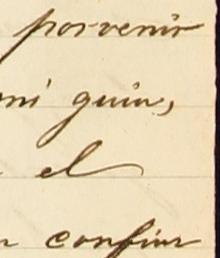 porvenir
mi guia,
el
confiar